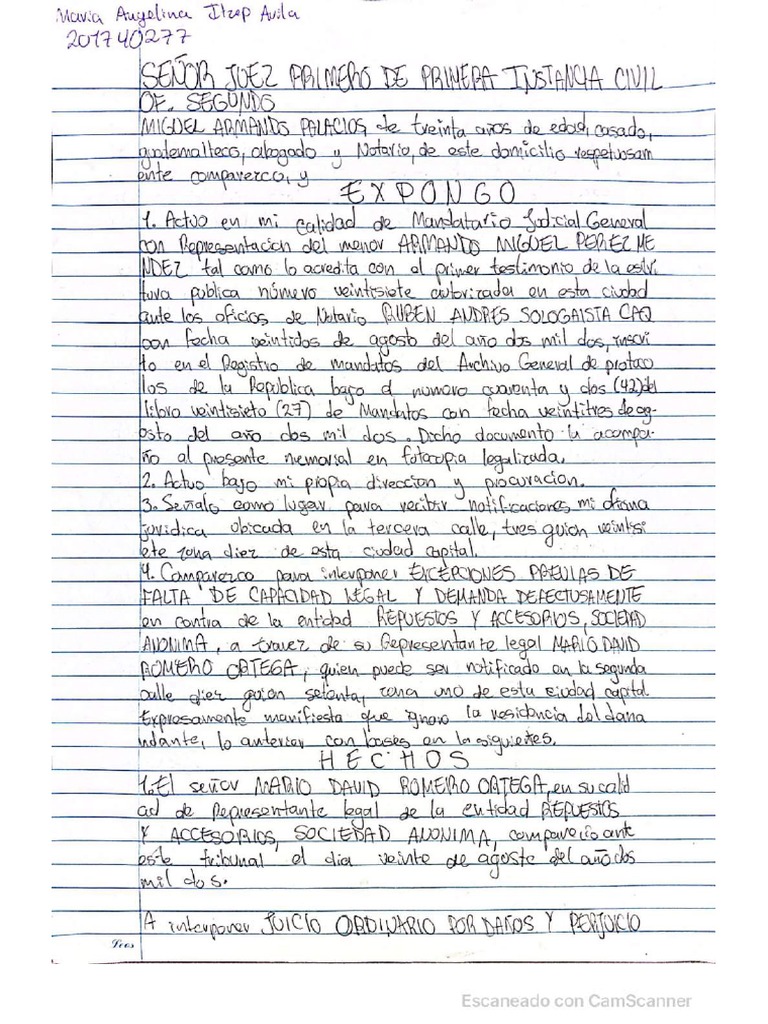 Maria Angelina Itzep Avila
201740277
SEÑOR JUEZ PRIMERO DE PRIMERA INSTANCIA CIVIL
OF. SEGUNDO
MIGUEL ARMANDO PALACIOS, de treinta años de edad, casado,
guatemalteco, abogado y Notario, de este domicilio respetuosam
ente comparezco, y
EXPONGO
1. Actuo en mi calidad de Mandatario Judicial General
con Representacion del menor ARMANDO MIGUEL PEREZ ME
NDEZ tal como lo acredita con el primer testimonio de la escri
tura publica número veintisiete autorizada en esta ciudad
ante los oficios de Notario RUBEN ANDRES SOLOGAISTA CAQ
con fecha veintidos de agosto del año dos mil dos, inscri
to en el Registro de mandatos del Archivo General de protoco
los de la Republica bajo el numero cuarenta y dos (42) del
libro veintisieto (27) de Mandatos con fecha veintitres de ag-
osto del año dos mil dos. Dicho documento la acompa-
ño al presente memorial en fotocopia legalizada.
2. Actuo bajo mi propia direccion y procuracion.
3. Señalo como lugar para recibir notificaciones mi oficina
juridica ubicada en la tercera calle, tres guion veintisi
ete zona diez de esta ciudad capital.
4. Comparezco para interponer EXCEPCIONES PREVIAS DE
FALTA DE CAPACIDAD LEGAL Y DEMANDA DEFECTUSAMENTE
en contra de la entidad REPUESTOS Y ACCESORIOS, SOCIEDAD
ANONIMA, a travez de su Representante legal MARIO DAVID
ROMERO ORTEGA, quien puede ser notificado en la segunda
calle diez guion setenta, zona uno de esta ciudad capital
Expresamente manifiesta que ignoro la residencia del dema
ndante, lo anterior con bases en la siguientes.
HECHOS
1. El señor MARIO DAVID ROMERO ORTEGA, en su calid
ad de Representante legal de la entidad REPUESTOS
Y ACCESORIOS, SOCIEDAD ANONIMA, comparecio ante
este tribunal el dia veinte de agosto del año dos
mil dos.
A interponer JUICIO ORDINARIO POR DAÑOS Y PERJUICIO
Escaneado con CamScanner